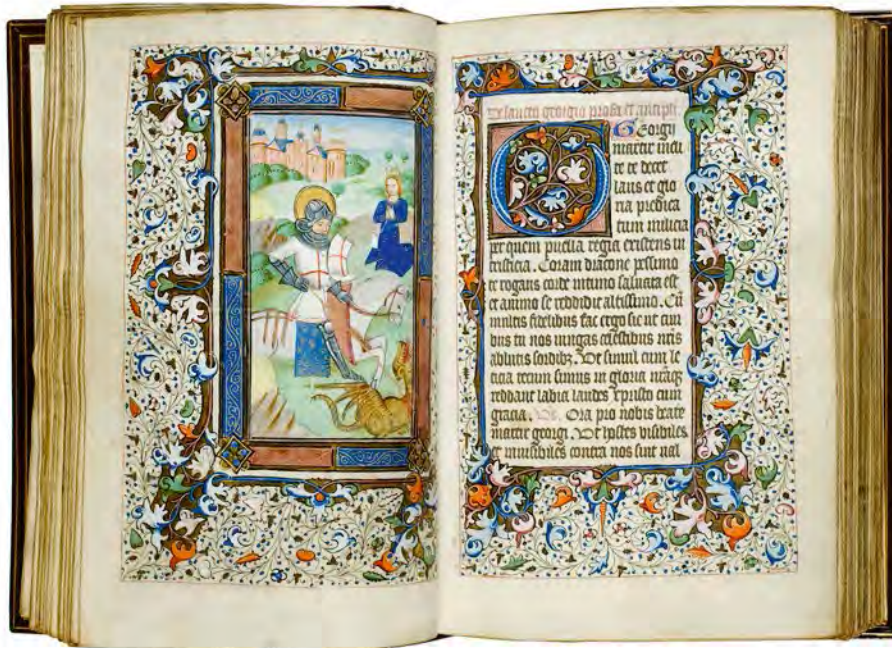 De sancto georgio prosa et ancipli
Georgi
martir incli
te te decet
laus et glo
ria predica
tum milicia
per quem puella regia existens in
tristicia. Coram dracone pessimo
te rogans corde intimo saluata est
et animo se reddidit altissimo. Cū
multis fidelibus fac ergo sic ut cun
bus tu nos iungas celestibus nr̄is
ablutis sordibꝫ. Ut simul cum le
ticia tecum simus in gloria nr̄aqꝫ
reddant labia laudes Xpristo cum
gracia. Ora pro nobis beate
martir georgi. Ut hostes visibiles
et inuisibiles contra nos sint nal